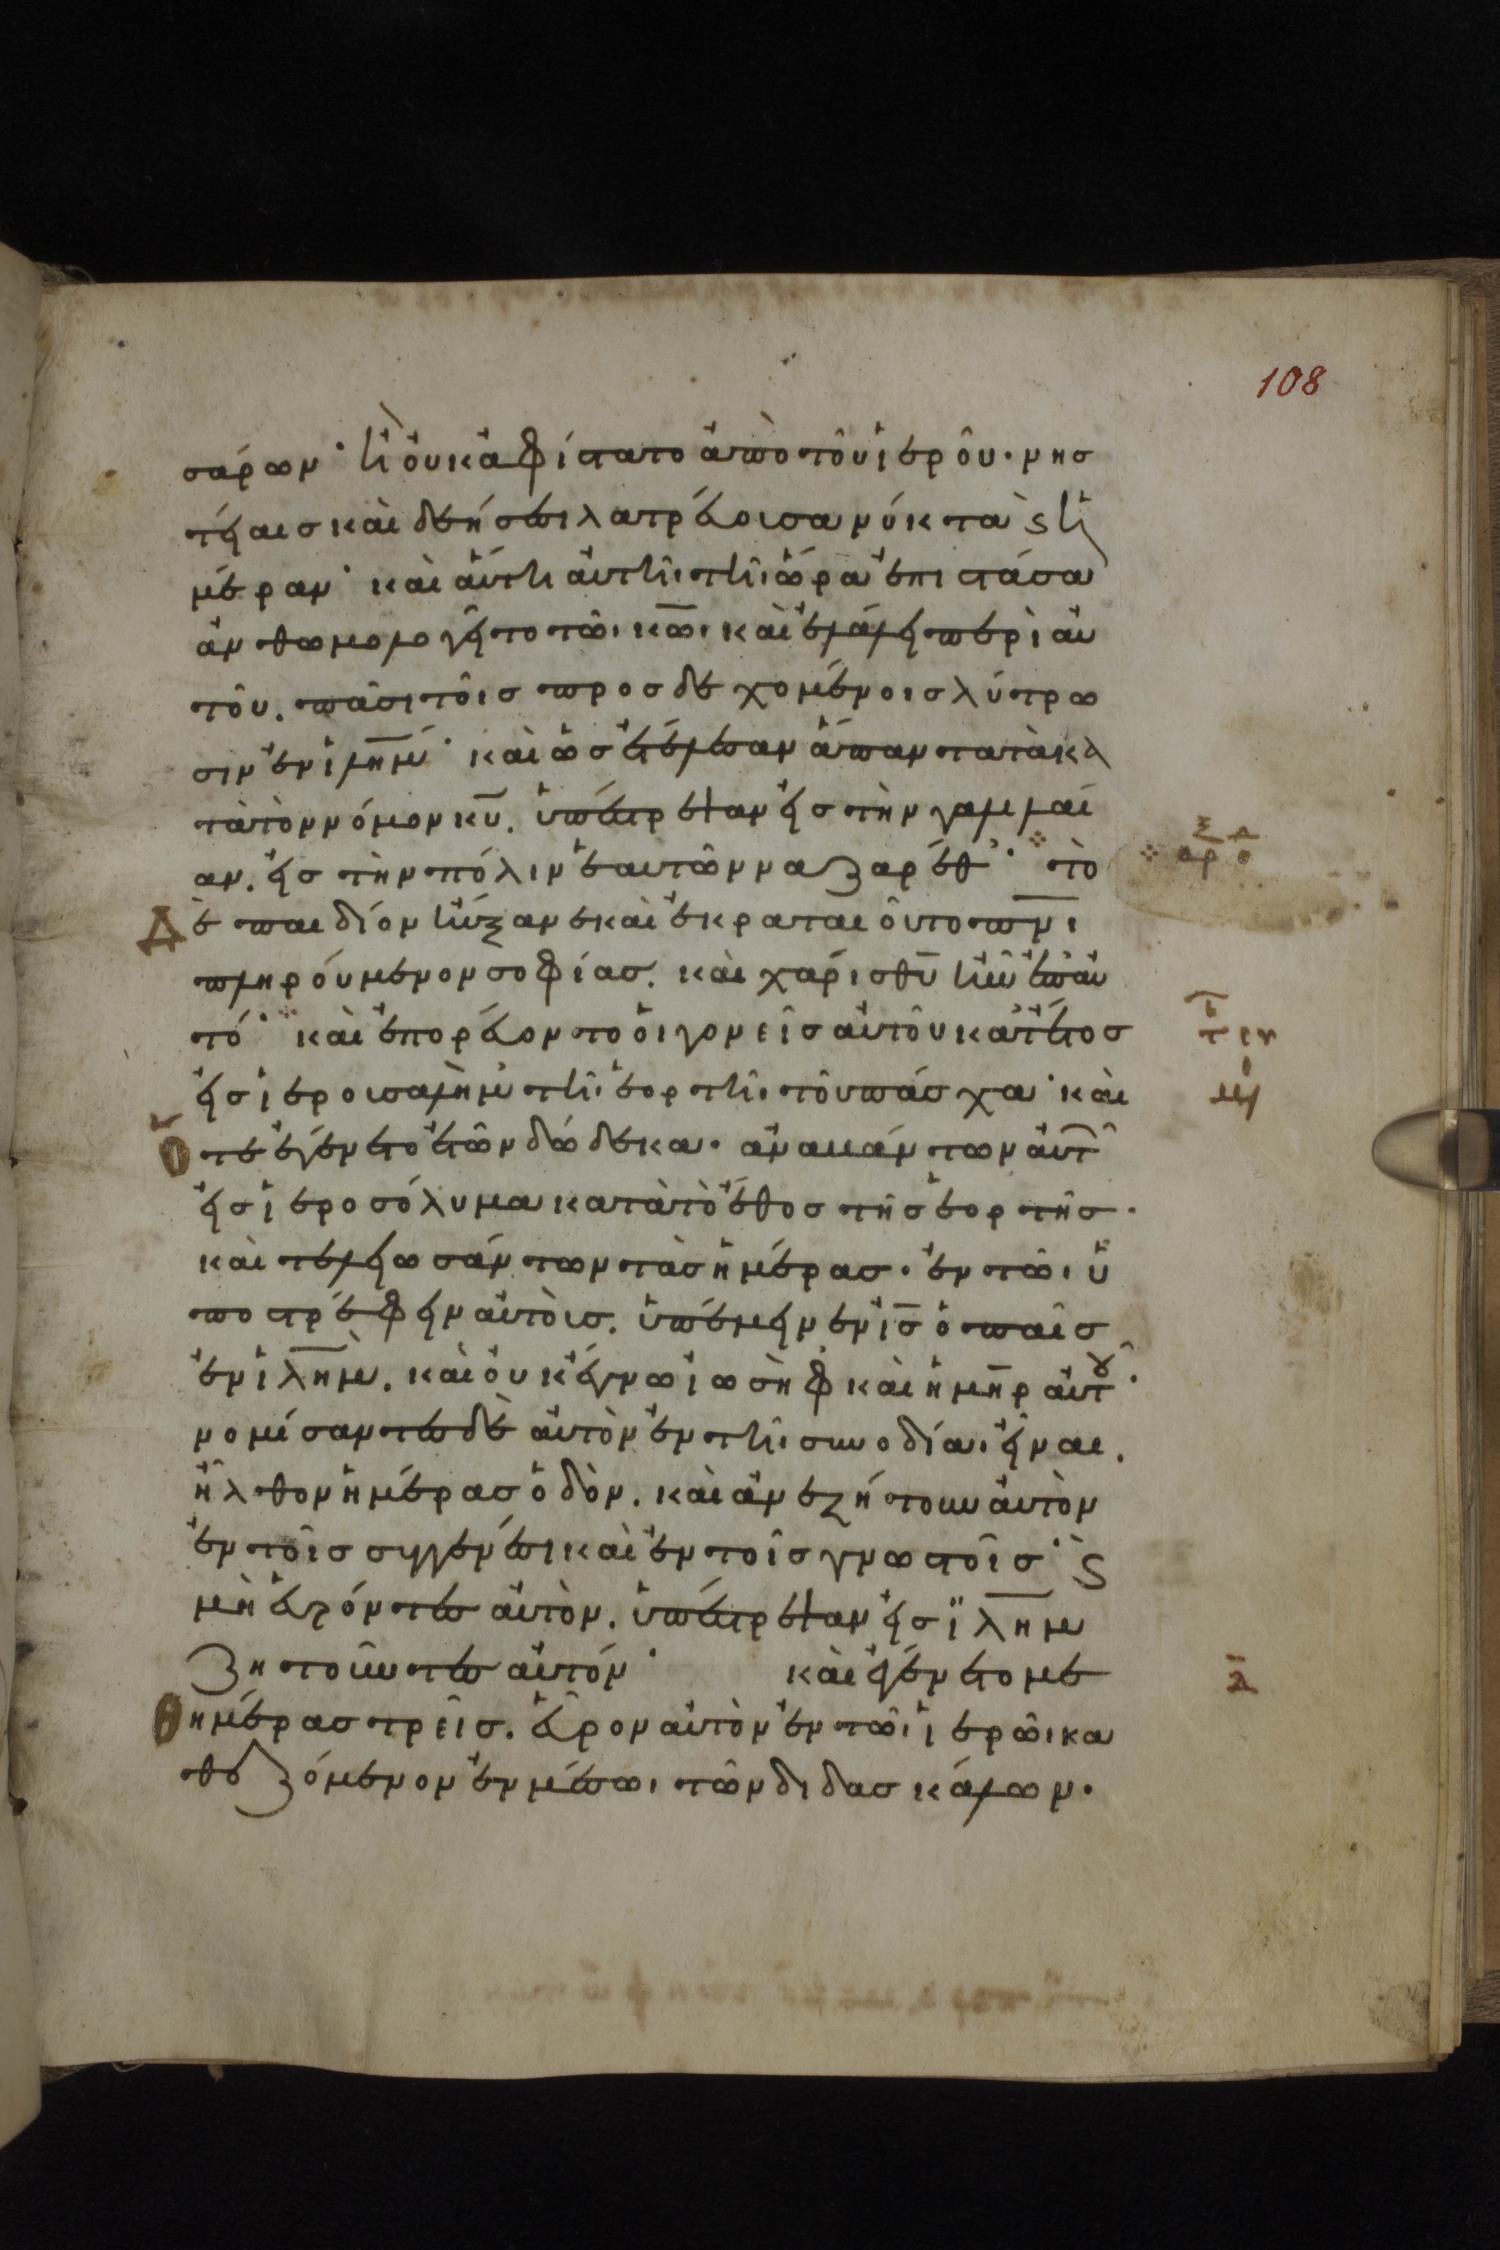 108
σάρων· ἣ οὐκ ἀφίστατο ἀπὸ τοῦ ἱεροῦ. νησ
τείαις καὶ δεήσεσι λατρεύουσα νύκτα ϛ ἡ
μέραν· καὶ αὕτη αὐτῆι τῆι ὥρα ἐπιστᾶσα
ἀνθωμολογεῖτο τῶι κ̅ω̅ι καὶ ἐλάλει περὶ αὐ
τοῦ. πᾶσι τοῖς προσδεχομένοις λύτρω
σιν ἐν ἰλη̅μ· καὶ ὡς ἐτέλεσαν ἅπαντα τὰ κα
τὰ τὸν νόμον κ̅υ̅. ὑπέστρεψαν εἰς τὴν γαλιλαί
αν. εἰς τὴν πόλιν ἑαυτῶν ναζαρέθ· ⁘ τὸ
⁘ αρ ο
Δὲ παιδίον ηὔξανε καὶ ἐκραταιοῦτο π̅ν̅ι
πληρούμενον σοφίας. καὶ χάρις θ̅υ̅ ἦν ἐπ' αὐ
τό· ⁘ καὶ ἐπορεύοντο οἱ γονεῖς αὐτοῦ κατ' ἔτος
εἰς ἱερουσαλὴμ τῆι ἑορτῆι τοῦ πάσχα· καὶ
Ὅτε ἐγένετο ἐτῶν δώδεκα. ἀναβάντων αὐτ
εἰς ἱεροσόλυμα κατὰ τὸ ἔθος τῆς ἑορτῆς.
καὶ τελειωσάντων τὰς ἡμέρας. ἐν τῶι ὑ
ποστρέφειν αὐτοὺς. ὑπέμεινεν ι̅ς̅ ὁ παῖς
ἐν ἰλη̅μ. καὶ οὐκ ἔγνω ἰωσὴφ καὶ ἡ μη̅ρ αὐτοῦ·
νομίσαντες δὲ αὐτὸν ἐν τῆι συνοδίαι εἶναι.
ἦλθον ἡμέρας ὁδὸν. καὶ ἀνεζήτουν αὐτὸν
ἐν τοῖς συγγενέσι καὶ ἐν τοῖς γνωστοῖς· ϛ
μὴ εὑρόντες αὐτὸν. ὑπέστρεψαν εἰς ϊλη̅μ
ζητοῦντες αὐτόν· καὶ ἐγένετο με
Θ ἡμέρας τρεῖς. εὗρον αὐτὸν ἐν τῶι ἱερῶι κα
θεζόμενον ἐν μέσωι τῶν διδασκάλων.